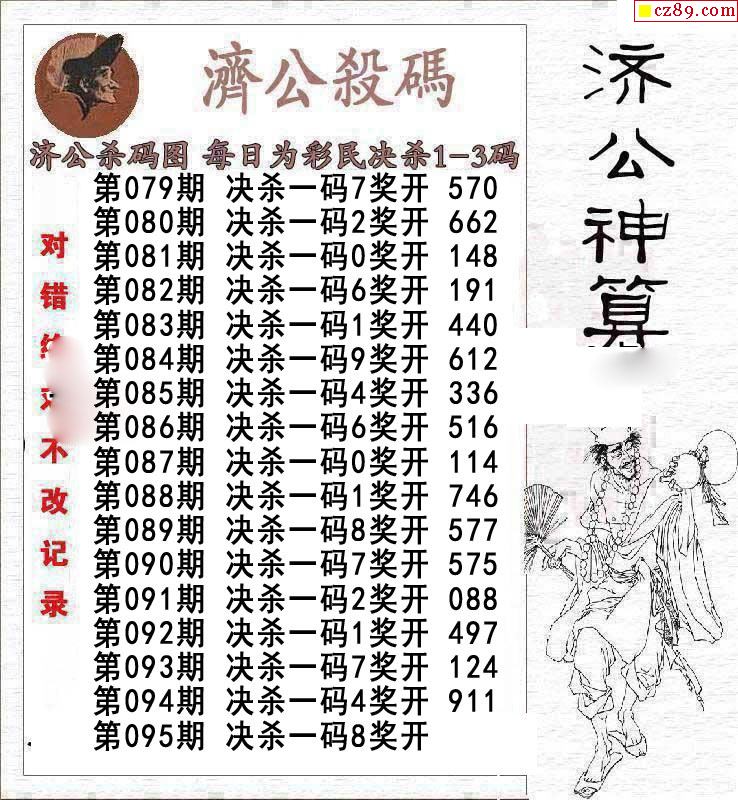 cz89.com
濟公殺碼
济公杀码图 每日为彩民决杀1-3码
第079期 决杀一码7奖开 570
第080期 决杀一码2奖开 662
第081期 决杀一码0奖开 148
第082期 决杀一码6奖开 191
第083期 决杀一码1奖开 440
第084期 决杀一码9奖开 612
第085期 决杀一码4奖开 336
第086期 决杀一码6奖开 516
第087期 决杀一码0奖开 114
第088期 决杀一码1奖开 746
第089期 决杀一码8奖开 577
第090期 决杀一码7奖开 575
第091期 决杀一码2奖开 088
第092期 决杀一码1奖开 497
第093期 决杀一码7奖开 124
第094期 决杀一码4奖开 911
第095期 决杀一码8奖开
对错不改记录
济公神算